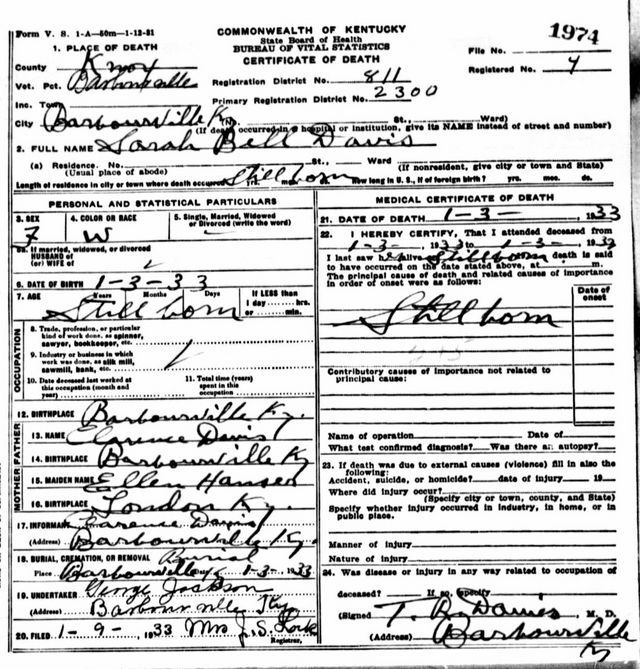 Form V. S. 1-A—50m—1-12-31
COMMONWEALTH OF KENTUCKY
State Board of Health
BUREAU OF VITAL STATISTICS
CERTIFICATE OF DEATH
1974
File No.
Registered No. 4
1. PLACE OF DEATH
County Knox
Vot. Pct. Barbourville
Registration District No. 811
Inc. Town
Primary Registration District No. 2300
City Barbourville Ky (No. St., Ward)
(If death occurred in a hospital or institution, give its NAME instead of street and number)
2. FULL NAME Sarah Bell Davis
(a) Residence. No. St., Ward
(Usual place of abode) (If nonresident, give city or town and State)
Length of residence in city or town where death occurred Stillborn yrs. mos. How long in U. S., if of foreign birth? yrs. mos. ds.
PERSONAL AND STATISTICAL PARTICULARS
3. SEX 4. COLOR OR RACE 5. Single, Married, Widowed or Divorced (write the word)
F W
5a. If married, widowed, or divorced
HUSBAND of
(or) WIFE of
6. DATE OF BIRTH 1-3-33
7. AGE Years Months Days If LESS than 1 day hrs. or min.
Stillborn
OCCUPATION
8. Trade, profession, or particular
kind of work done, as spinner,
sawyer, bookkeeper, etc.
9. Industry or business in which
work was done, as silk mill,
sawmill, bank, etc.
10. Date deceased last worked at
this occupation (month and
year)
11. Total time (years)
spent in this
occupation
12. BIRTHPLACE Barbourville Ky.
FATHER
13. NAME Clarence Davis
14. BIRTHPLACE Barbourville Ky
MOTHER
15. MAIDEN NAME Ellen Hansen
16. BIRTHPLACE London Ky.
17. INFORMANT Clarence Davis
(Address) Barbourville Ky.
18. BURIAL, CREMATION, OR REMOVAL Burial
Place Barbourville 1-3-1933
19. UNDERTAKER George Jackson
(Address) Barbourville Ky
20. FILED 1-9-1933 Mrs J. S.
Registrar.
MEDICAL CERTIFICATE OF DEATH
21. DATE OF DEATH 1-3-, 1933
22. I HEREBY CERTIFY, That I attended deceased from
1-3-, 1933 to 1-3-, 1933
I last saw h alive Stillborn death is said
to have occurred on the date stated above, at m.
The principal cause of death and related causes of importance
in order of onset were as follows:
Date of onset
Stillborn
Contributory causes of importance not related to
principal cause:
Name of operation Date of
What test confirmed diagnosis? Was there an autopsy?
23. If death was due to external causes (violence) fill in also the
following:
Accident, suicide, or homicide? date of injury 19
Where did injury occur?
(Specify city or town, county, and State)
Specify whether injury occurred in industry, in home, or in
public place.
Manner of injury
Nature of injury
24. Was disease or injury in any way related to occupation of
deceased? If so, specify
(Signed T. R. Davies, M. D.
(Address) Barbourville
Ky